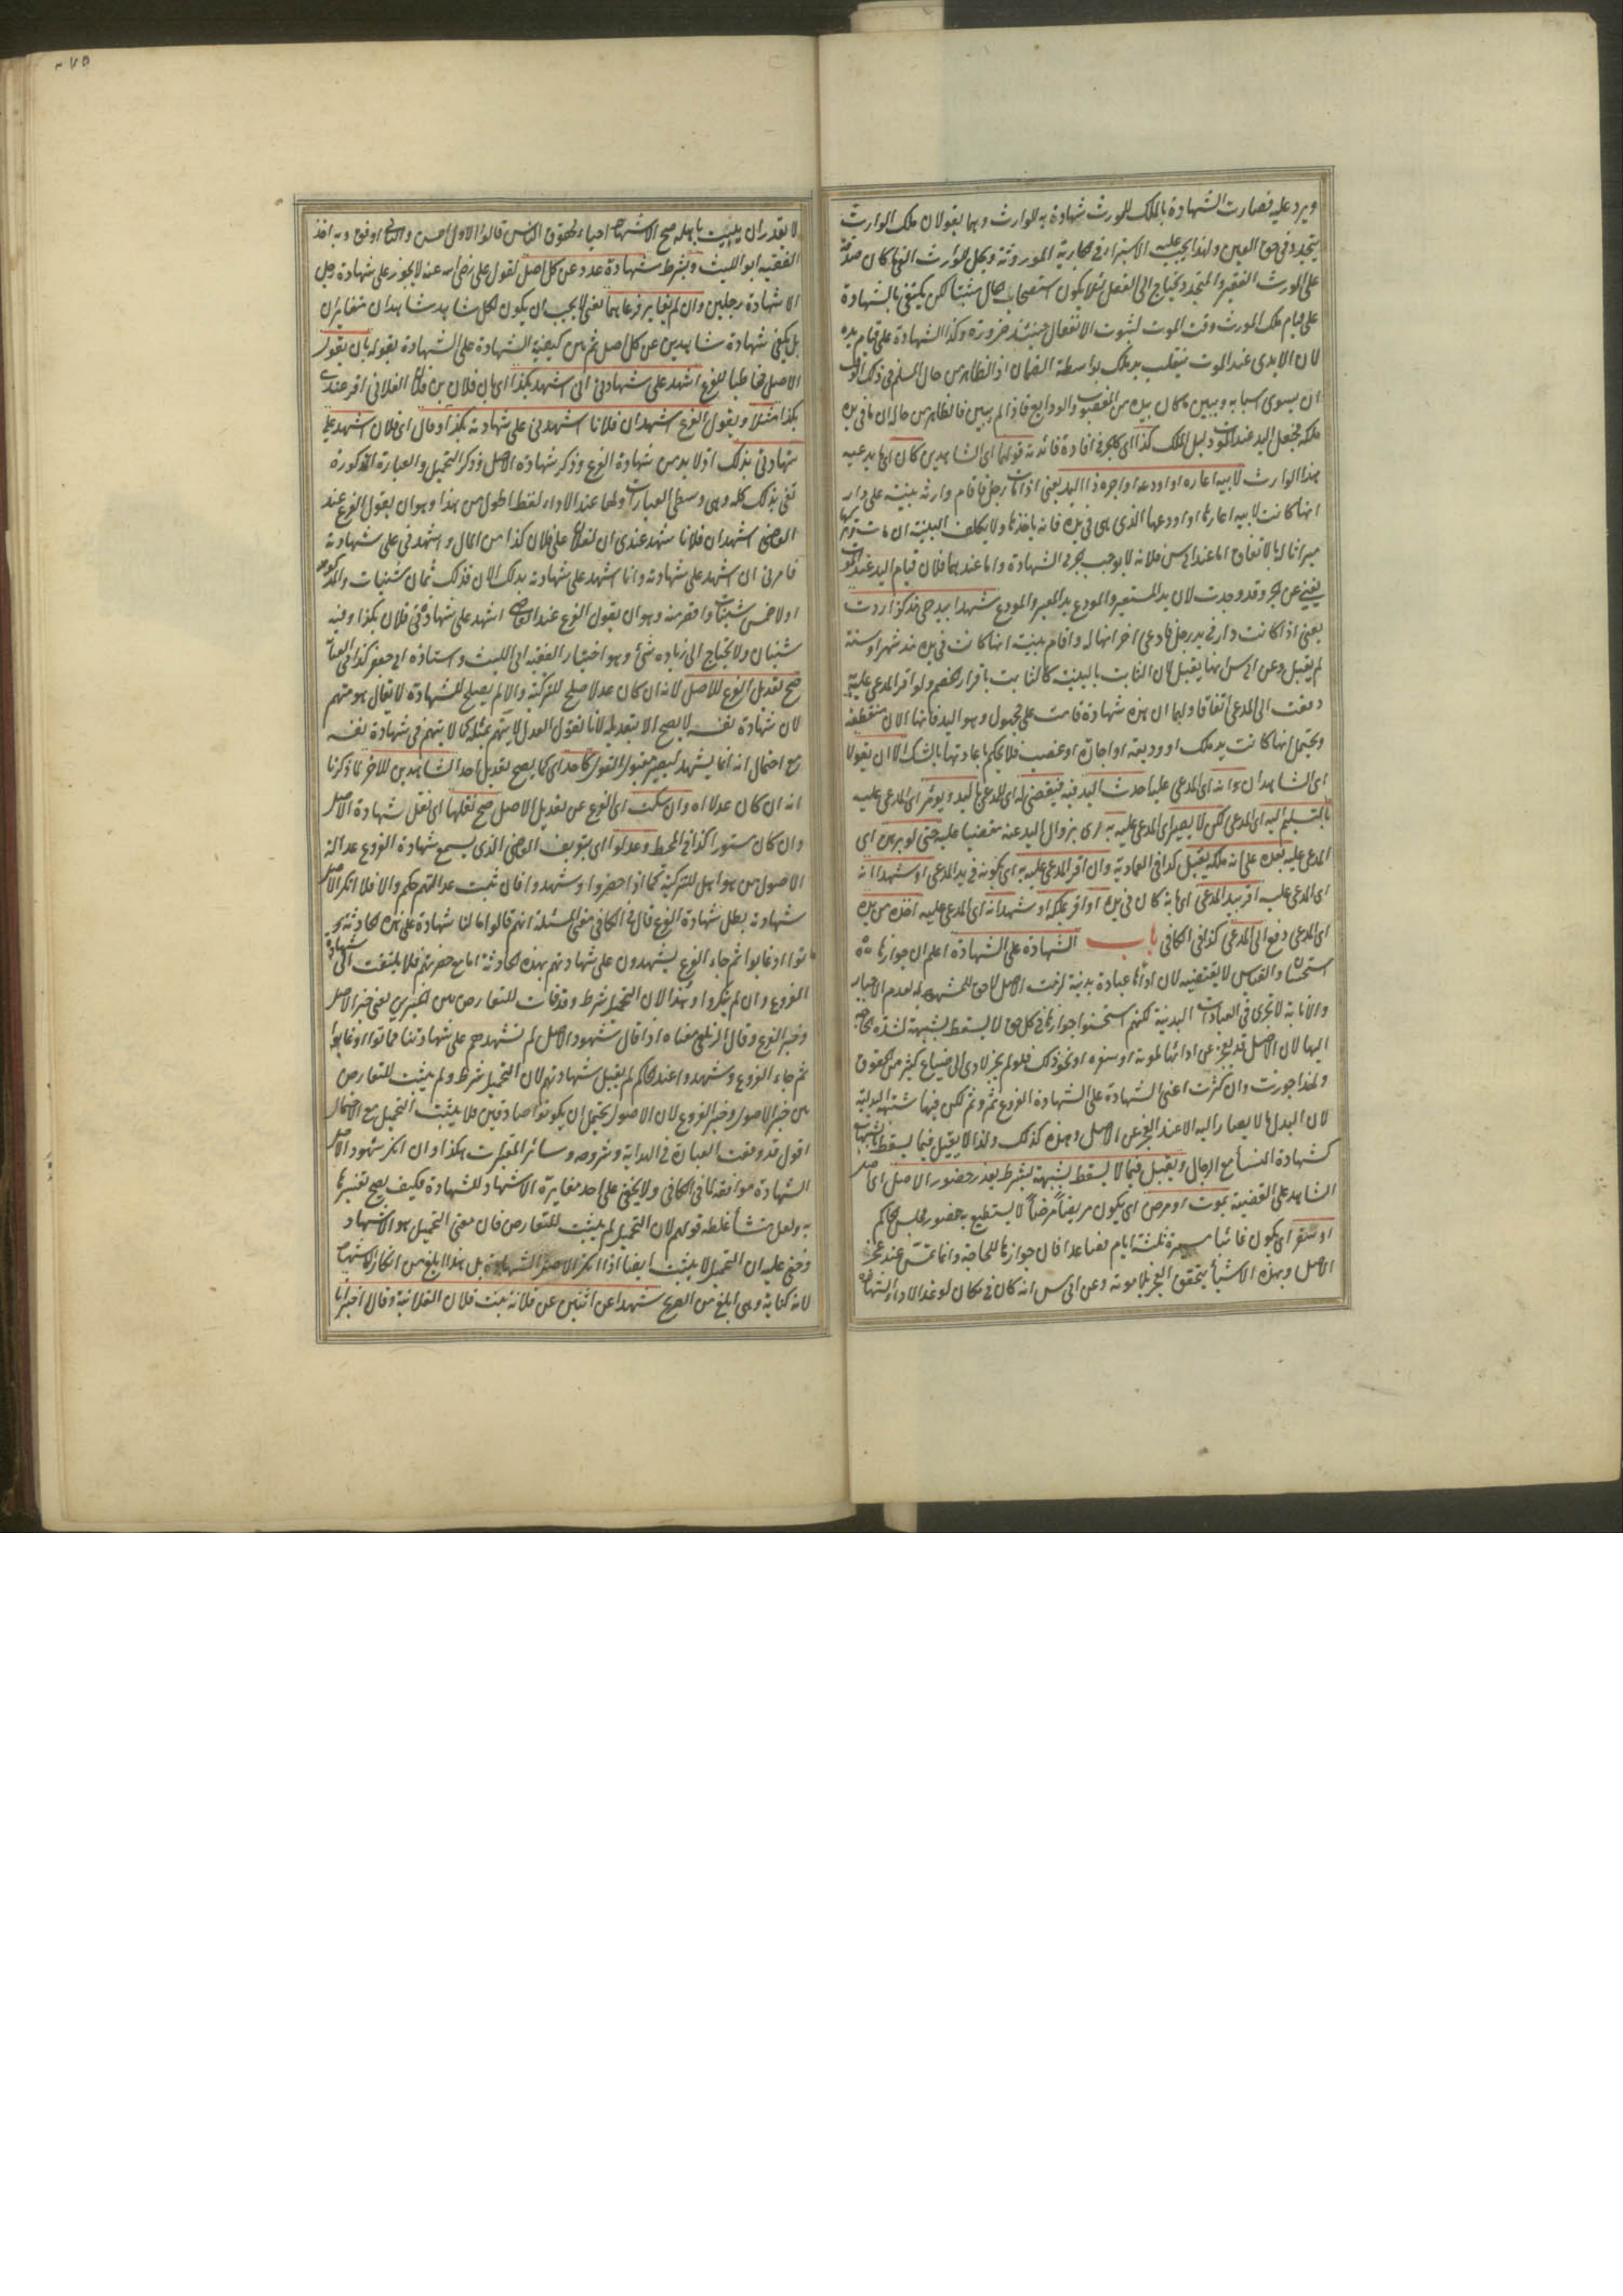 ويرد عليه فصارت الشهادة بالملك للمورث شهادة به للوارث وهما يقولان ملك الوارث
يتجدد في حق العين ولهذا يجب عليه الاستبراء في الجارية الموروثة ويحل للوارث الغني ما كان صدقة
على المورث الفقير والمتجدد يحتاج الى النقل لئلا يكون استصحاب الحال مثبتا لكن يكتفي بالشهادة
على قيام ملك المورث وقت الموت لثبوت الانتقال حينئذ ضرورة وكذا الشهادة على قيام يده
لان الايدي عند الموت ينقلب يد ملك بواسطة الضمان اذ الظاهر من حال المسلم في ذلك الوقت
ان يسوى اسبابه ويبين ما كان بيده من الغصوب والودايع فاذا لم يبين فالظاهر من حاله ان ما في يده
ملكه فجعل اليد عند الموت دليل الملك كذا اي كالجر في افادة فائدته قولهما اي الشاهدين كان اي ما يدعيه
هذا الوارث لابيه اعاره او اودعه او اجره ذا اليد يعني اذا مات رجل فاقام وارثه بينة على دار
انها كانت لابيه اعارها او اودعها الذي هي في يده فانه ياخذها ولا يكلف البينة انه مات وتركها
ميراثا له بالاتفاق اما عند ابي س فلانه لا يوجب الجر في الشهادة واما عندهما فلان قيام اليد عند الموت
يغني عن الجر وقد وجدت لان يد المستعير والمودع يد المعير والمودع شهدا بيد حي مذ كذا ردت
يعني اذا كانت دار في يد رجل فادعى اخر انها له واقام بينة انها كانت في يده مذ شهر او سنة
لم يقبل وعن ابي س انها يقبل لان الثابت بالبينة كالثابت باقرار الخصم ولو اقر المدعى عليه
دفعت الى المدعي اتفاقا ولهما ان هذه شهادة قامت على مجهول وهو اليد فانها الان منقطعة
ويحتمل انها كانت يد ملك او وديعة او اجارة او غصب فلا يحكم باعادتها بالشك الا ان يقولا
اي الشاهدان وانه اي المدعى عليه احدث اليد فيه فيقضى له اي للمدعي باليد ويؤمر اي المدعى عليه
بالتسليم اليه اي المدعي لكن لا يصير اي المدعى عليه به اي بزوال اليد عنه مقضيا عليه حتى لو برهن اي
المدعى عليه بعده على انه ملكه يقبل كذا في العمادية وان اقر المدعى عليه به اي بكونه في يد المدعي او شهدا انه
اي المدعى عليه اقر بيد المدعي اي بانه كان في يده او اقر بملكه او شهدا انه اي المدعى عليه اخذه من يده
اي المدعي دفع الى المدعي كذا في الكافي باب الشهادة على الشهادة اعلم ان جوازها
استحسان والقياس لا يقتضيه لان ادائها عبادة بدنية لزمت الاصل لا حق للمشهود له بعدم الاجبار
والانابة لا تجري في العبادات البدنية لكنهم استحسنوا جوازها في كل حق لا يسقط بشبهة لشدة الحاجة
اليها لان الاصل قد يعجز عن ادائها لموته او سفره او نحو ذلك فلو لم يجز لادى الى ضياع كثير من الحقوق
ولهذا جوزت وان كثرت اعني الشهادة على الشهادة الفروع ثم وثم لكن فيها شبهة البدلية
لان البدل ما لا يصار اليه الا عند العجز عن الاصل وهذه كذلك ولذا لا يقبل فيما يسقط بالشبهات
كشهادة النساء مع الرجال ويقبل فيما لا يسقط بشبهة بشرط تعذر حضور الاصل اي اصل
الشاهد على القضية بموت او مرض اي يكون مريضا مرضا لا يستطيع به حضور مجلس الحاكم
او سفر اي يكون غائبا مسيرة ثلثة ايام فصاعدا فان جوازها للحاجة وانما تمس عند عجز
الاصل وبهذه الاشياء يتحقق العجز بلا مؤنة وعن ابي س انه كان في مكان لو غدا لاداء الشهادة
لا يقدر ان يبيت باهله صح الاشهاد احياء لحقوق الناس قالوا الاول احسن والثاني اوفق وبه اخذ
الفقيه ابو الليث وبشرط شهادة عدد عن كل اصل لقول علي رضي الله عنه لا يجوز على شهادة رجل
الا شهادة رجلين وان لم تغاير فرعاهما يعني لا يجب ان يكون لكل شاهد شاهدان متغايران
بل يكفي شهادة شاهدين عن كل اصل ثم بين كيفية الشهادة على الشهادة بقوله بان يقول
الاصل مخاطبا للفرع اشهد على شهادتي اني اشهد بكذا اي بان فلان بن فلان الفلاني اقر عندي
بكذا مثلا ويقول الفرع اشهد ان فلانا اشهدني على شهادته بكذا وقال اي فلان اشهد على
شهادتي بذلك اذ لا بد من شهادة الفرع وذكر شهادة الاصل وذكر التحميل والعبارة المذكورة
تفي بذلك كله وهي وسطى العبارات ولها عند الاداء لفظ اطول من هذا وهو ان يقول الفرع عند
القاضي اشهد ان فلانا شهد عندي ان لفلان على فلان كذا من المال واشهدني على شهادته
فامرني ان اشهد على شهادته وانا اشهد على شهادته بذلك الان فذلك ثمان شينات والمذكور
اولا خمس شينات واقصر منه وهو ان يقول الفرع عند القاضي اشهد على شهادة فلان بكذا وفيه
شينان ولا يحتاج الى زيادة شئ وهو اختيار الفقيه ابي الليث واستاذه ابي جعفر كذا في العناية
صح تعديل الفرع للاصل لانه ان كان عدلا صلح للتزكية والا لم يصلح للشهادة لا يقال هو متهم
لان شهادة نفسه لا يصح الا بتعديله لانا نقول العدل لا يتهم بمثله كما لا يتهم في شهادة نفسه
مع احتمال انه انما يشهد ليصير مقبول القول كاحد اي كما يصح تعديل احد الشاهدين للاخر لما ذكرنا
انه ان كان عدلا اه وان سكت اي الفرع عن تعديل الاصل صح نقلها اي نقل شهادة الاصل
وان كان مستورا كذا في المحيط وعدلوا اي يتعرف القاضي الذي يسمع شهادة الفروع عدالة
الاصول ممن هو اهل للتزكية كما اذا حضروا وشهدوا فان ثبت عدالتهم حكم والا فلا انكر الاصل
شهادته بطل شهادة الفرع قال في الكافي معنى المسئلة انهم قالوا ما لنا شهادة على هذه الحادثة
ماتوا او غابوا ثم جاء الفروع يشهدون على شهادتهم بهذه الحادثة اما مع حضرتهم فلا يلتفت الى شهادة
الفروع وان لم ينكروا وهذا لان التحميل شرط وقد فات للتعارض بين الخبرين يعني خبر الاصل
وخبر الفرع وقال الزيلعي معناه اذا قال شهود الاصل لم نشهدهم على شهادتنا فماتوا او غابوا
ثم جاء الفروع وشهدوا عند الحاكم لم يقبل شهادتهم لان التحميل شرط ولم يثبت للتعارض
بين خبر الاصول وخبر الفروع لان الاصول يحتمل ان يكونوا صادقين فلا يثبت التحميل مع الاحتمال
اقول قد وقعت العبارة في الهداية وشروحه وسائر المعتبرات هكذا وان انكر شهود الاصل
الشهادة موافقة لما في الكافي ولا يخفى على احد مغايرة الاشهاد للشهادة فكيف يصح تفسيرها
به ولعل منشأ غلطه قولهم لان التحميل لم يثبت للتعارض فان معنى التحميل هو الاشهاد
وخفي عليه ان التحميل لا يثبت ايضا اذا انكر الاصل الشهادة بل هذا ابلغ من انكار الاشهاد
لانه كناية وهي ابلغ من الصريح شهدا عن اثنين عن فلانة بنت فلان الفلانية وقالا اخبرانا